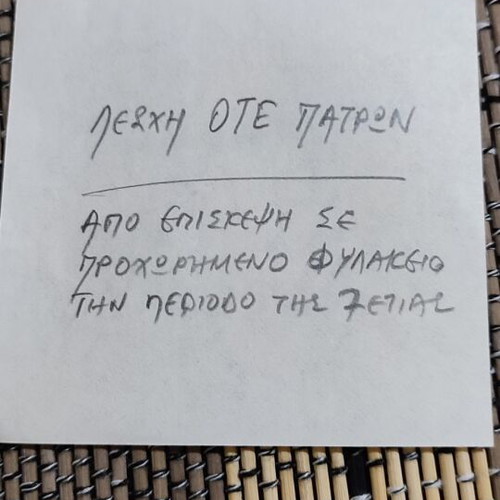 ΛΕΣΧΗ ΟΤΕ ΠΑΤΡΩΝ
ΑΠΟ ΕΠΙΣΚΕΨΗ ΣΕ
ΠΡΟΧΩΡΗΜΕΝΟ ΦΥΛΑΚΕΙΟ
ΤΗΝ ΠΕΡΙΟΔΟ ΤΗΣ 7ΕΤΙΑΣ